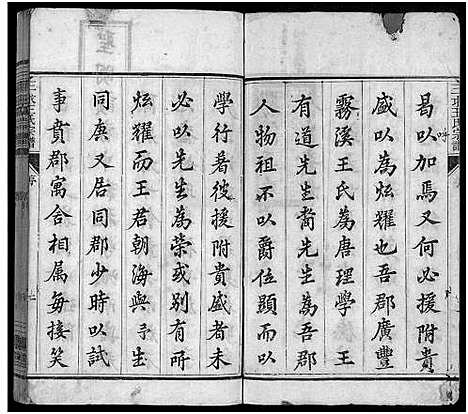 三環王氏宗譜
曷以加焉又何必援附貴
盛以為炫耀也吾郡廣豐
霧溪王氏為唐理學 王
有道先生裔先生為吾郡
人物祖不以爵位顯而以
學行著彼援附貴盛者未
必以先生為榮或別有所
炫耀而王君朝海與予生
同庚又居同郡少時以試
事賁郡寓合相属每接笑
氏宗譜
序